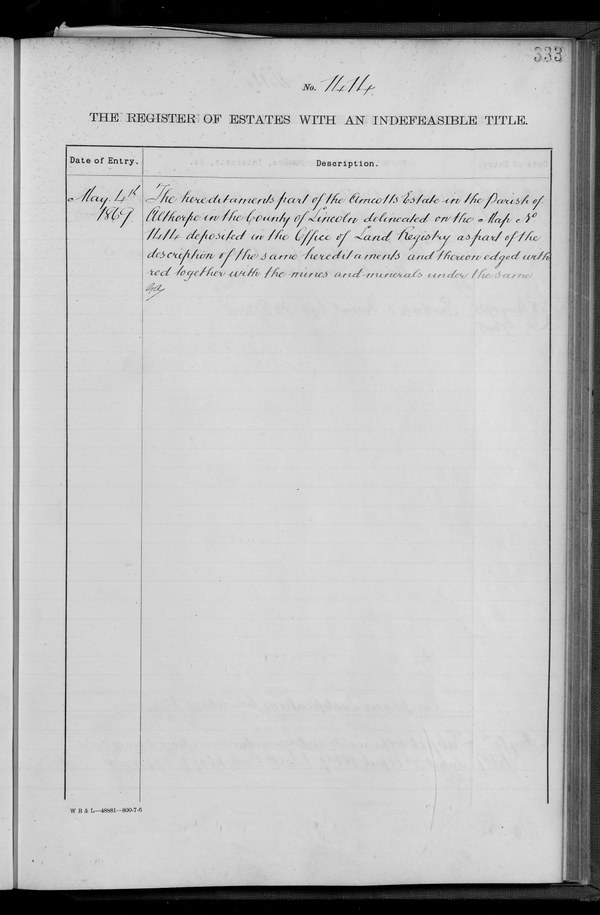 333
No. 1414
THE REGISTER OF ESTATES WITH AN INDEFEASIBLE TITLE.
Date of Entry.
Description.
May 4th
1869
The hereditaments part of the Amcotts Estate in the Parish of
Althorpe in the County of Lincoln delineated on the Map No
1414 deposited in the Office of Land Registry as part of the
description of the same hereditaments and thereon edged with
red together with the mines and minerals under the same
W B & L—48881—800-7-6